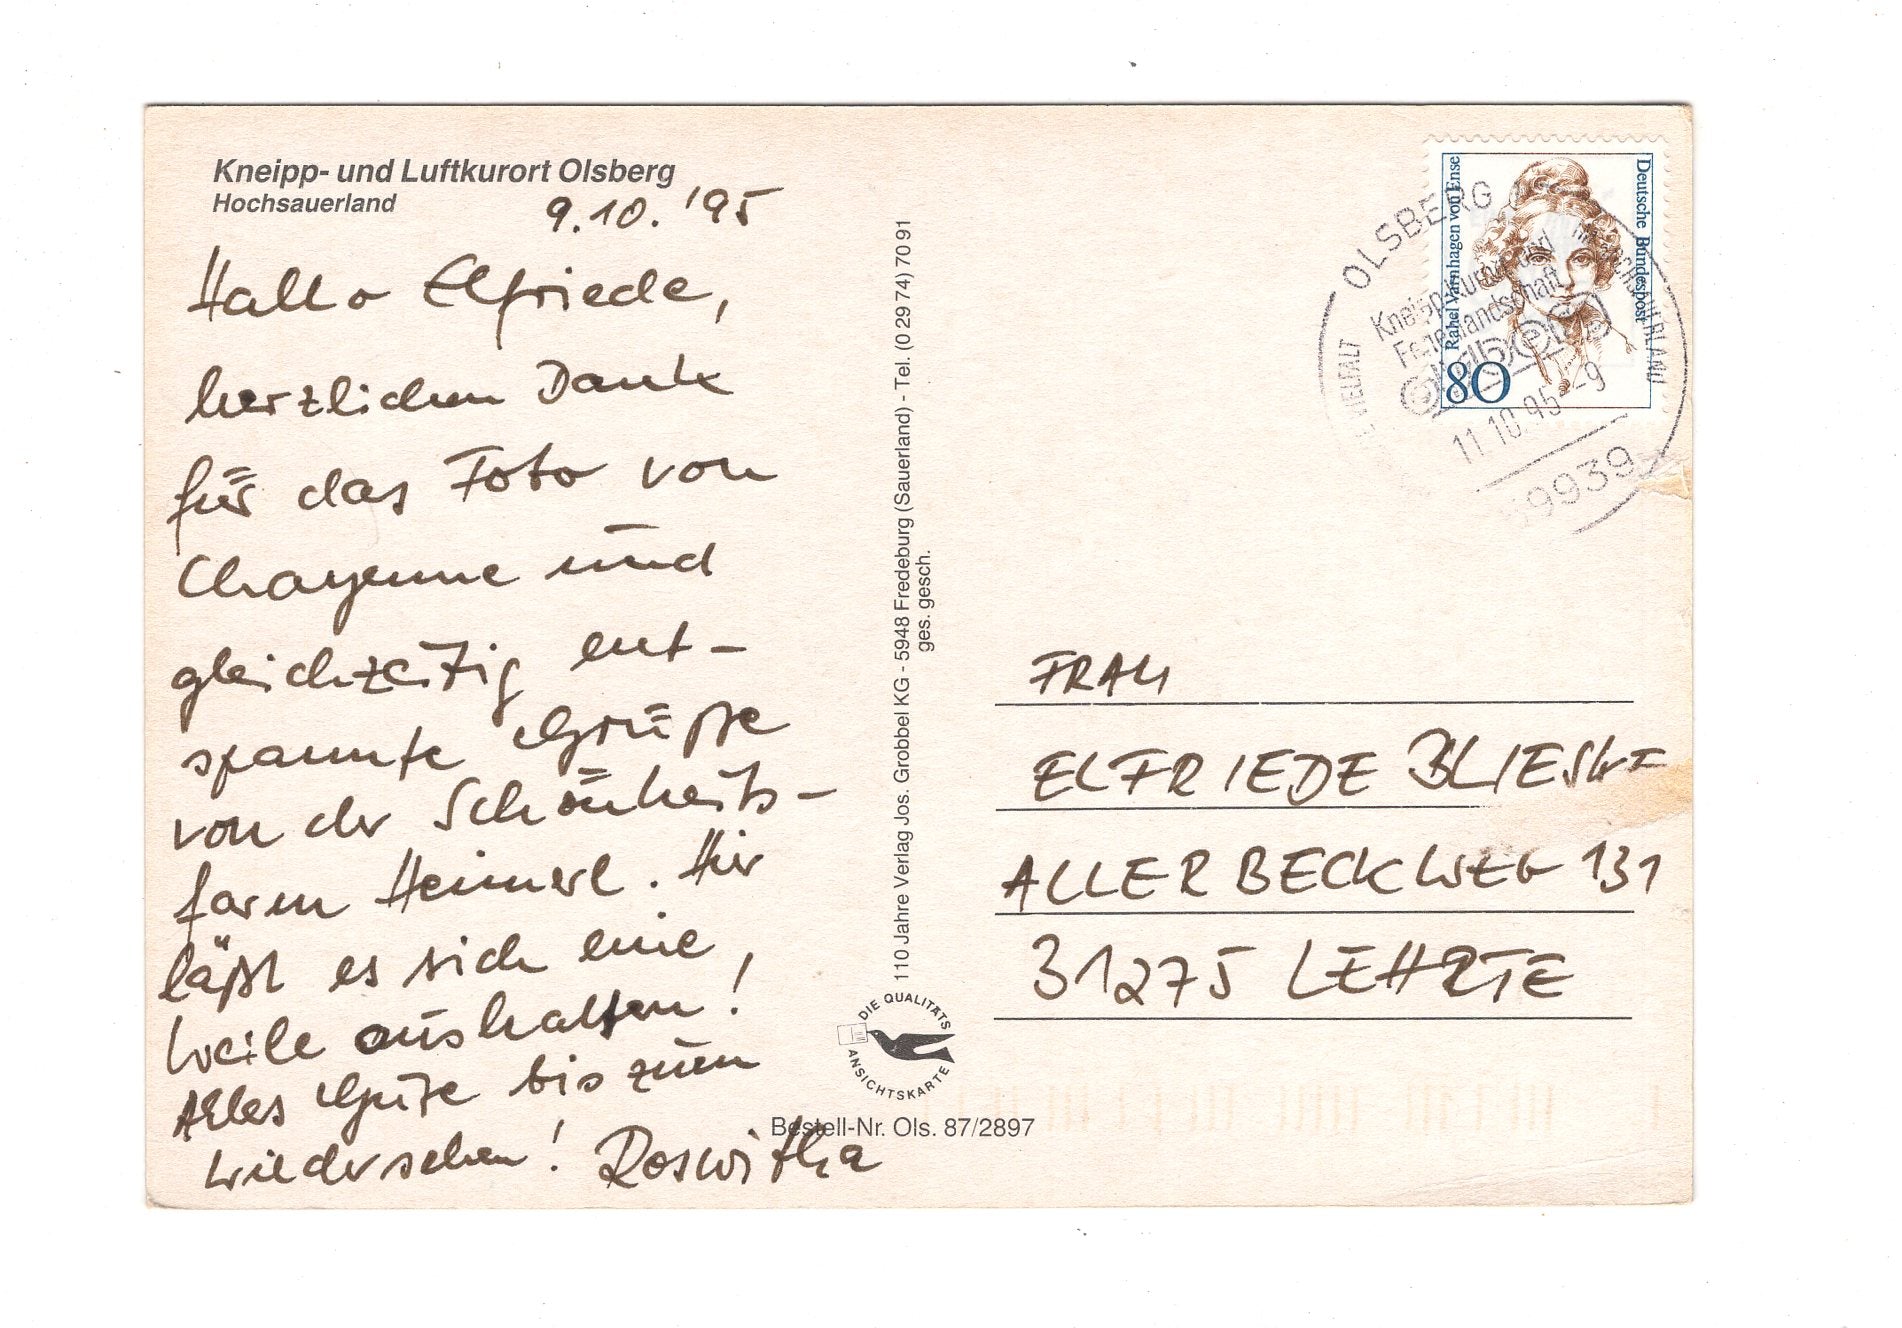 Kneipp- und Luftkurort Olsberg
Hochsauerland
9.10. '95
Hallo Elfriede,
herzlichen Dank
für das Foto von
Chayenne und
gleichzeitig ent-
spannte Grüße
von der Schönheits-
farm Heimerl. Hier
läßt es sich eine
Weile aushalten!
Alles Gute bis zum
Wiedersehen! Roswitha
110 Jahre Verlag Jos. Grobbel KG - 5948 Fredeburg (Sauerland) - Tel. (0 29 74) 70 91
ges. gesch.
DIE QUALITÄTS
ANSICHTSKARTE
Bestell-Nr. Ols. 87/2897
Deutsche Bundespost
Rahel Varnhagen von Ense
80
OLSBERG
VIELFALT
Olsberg
11.10.95-9
59939
FRAU
ELFRIEDE BLIESKE
ALLERBECKWEG 131
31275 LEHRTE